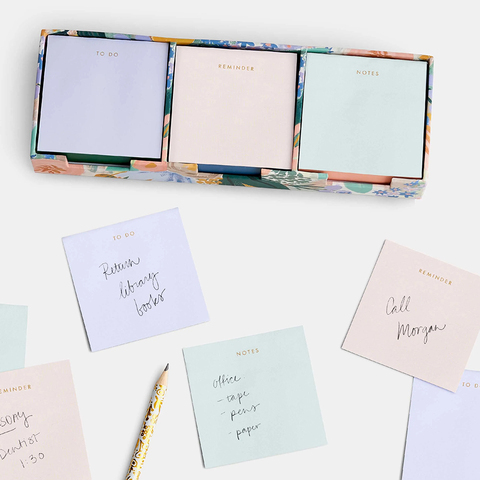 TO DO
REMINDER
NOTES
TO DO
Return
library
books
REMINDER
Call
Morgan
NOTES
office
- tape
- pens
- paper
REMINDER
Dentist
1:30
TO DO